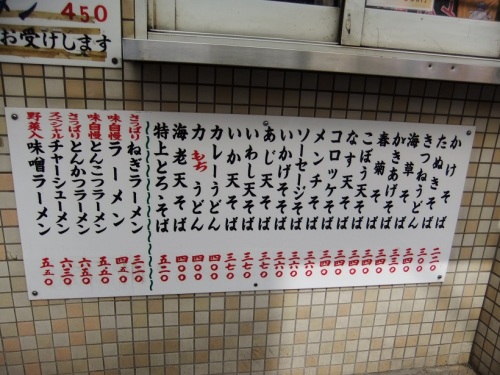 メン 450
お受けします
かけそば
たぬきそば
きつねうどん 三〇〇
海草そば
かきあげそば
春菊そば 三四〇
ごぼう天そば 三四〇
なす天そば 三四〇
コロッケそば 三四〇
メンチそば
ソーセージそば 三六〇
いかげそそば 三六〇
あじ天そば 三七〇
いわし天そば 三七〇
いか天そば 三七〇
カレーうどん 四〇〇
力もちうどん 四〇〇
海老天そば 四〇〇
特上とろゝそば 五二〇
さっぱりねぎラーメン 三二〇
味自慢ラーメン 四五〇
味自慢とんこつラーメン 五五〇
さっぱりとんかつラーメン 六五〇
スペシャルチャーシューメン 六三〇
野菜入味噌ラーメン 五五〇